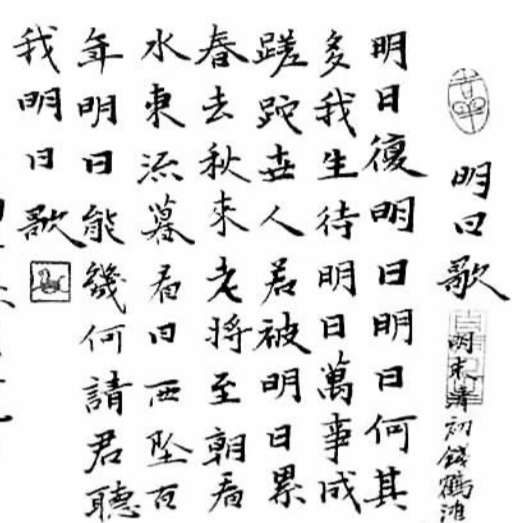 明日歌
明末清初錢鶴灘
明日復明日明日何其
多我生待明日萬事成
蹉跎世人若被明日累
春去秋來老將至朝看
水東流暮看日西墜百
年明日能幾何請君聽
我明日歌